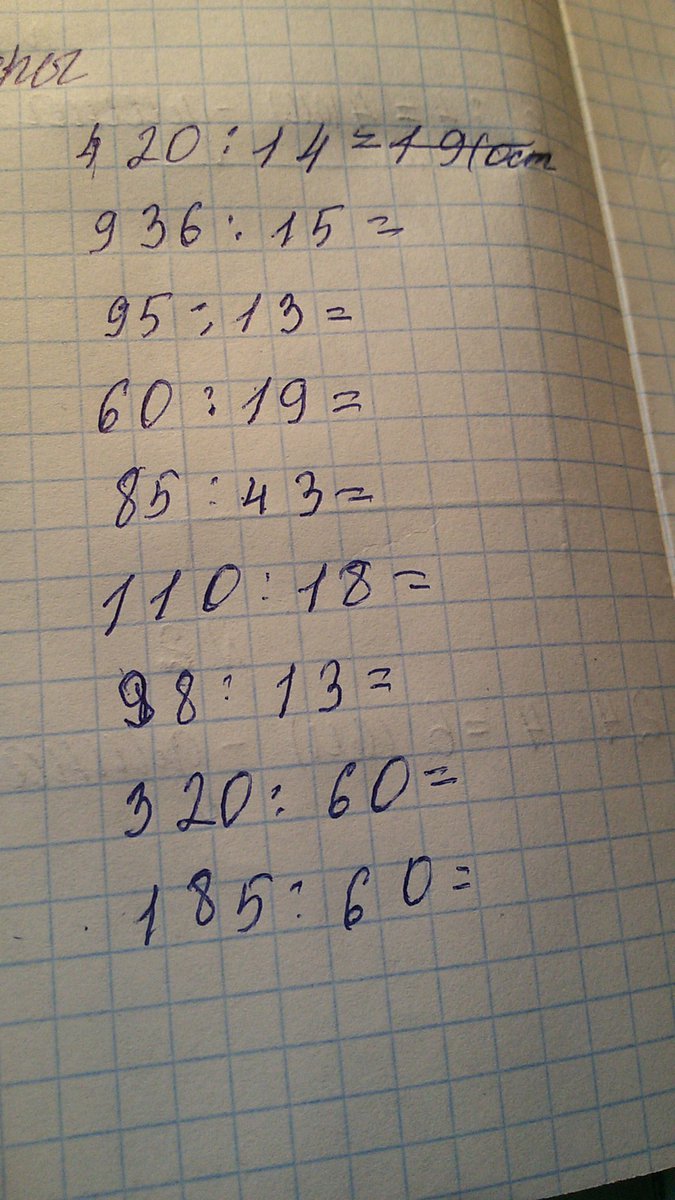 420 : 14 = 19 (ост
936 : 15 =
95 : 13 =
60 : 19 =
85 : 43 =
110 : 18 =
98 : 13 =
320 : 60 =
185 : 60 =